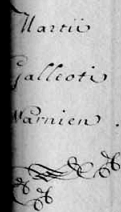 Martii
Galleoti
Narnien.